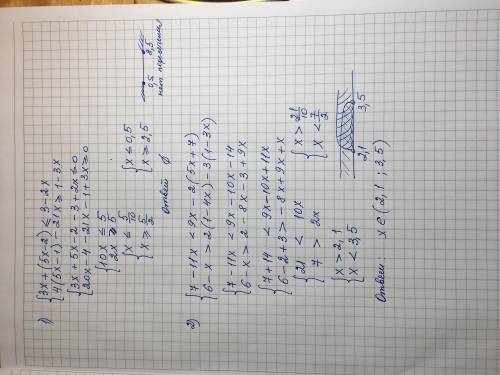 1) {3x + (5x-2) ≤ 3-2x
{4(5x-1) - 21x ≥ 1-3x
{3x + 5x - 2 - 3 + 2x ≤ 0
{20x - 4 - 21x - 1 + 3x ≥ 0
{10x ≤ 5
{2x ≥ 5
{x ≤ 5/10
{x ≥ 5/2
{x ≤ 0,5
{x ≥ 2,5
0,5 2,5
нет пересечения
Ответ ∅
2) {7-11x < 9x - 2(5x+7)
{6-x > 2(1-4x) - 3(1-3x)
{7-11x < 9x-10x-14
{6-x > 2-8x-3+9x
{7+14 < 9x-10x+11x
{6-2+3 > -8x+9x+x
{21 < 10x
{7 > 2x
{x > 21/10
{x < 7/2
{x > 2,1
{x < 3,5
2,1 3,5
Ответ x ∈ (2,1 ; 3,5)